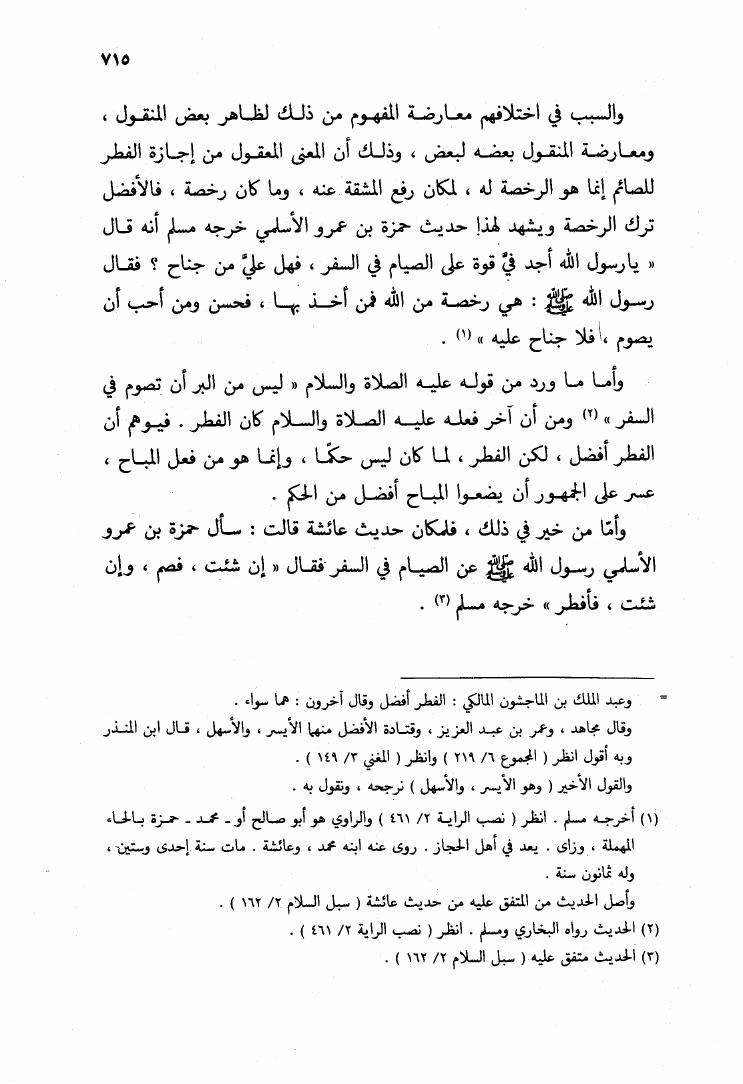 ٧١٥
والسبب في اختلافهم معارضة المفهوم من ذلك لظاهر بعض المنقول ،
ومعارضة المنقول بعضه لبعض ، وذلك أن المعنى المعقول من إجازة الفطر
للصائم إنما هو الرخصة له ، لمكان رفع المشقة عنه ، وما كان رخصة ، فالأفضل
ترك الرخصة ويشهد لهذا حديث حمزة بن عمرو الأسلمي خرجه مسلم أنه قال
« يارسول الله أجد فيَّ قوة على الصيام في السفر ، فهل عليَّ من جناح ؟ فقال
رسول الله ﷺ : هي رخصة من الله فمن أخذ بها ، فحسن ومن أحب أن
يصوم ، فلا جناح عليه » (١) .
وأما ما ورد من قوله عليه الصلاة والسلام « ليس من البر أن تصوم في
السفر » (٢) ومن أن آخر فعله عليه الصلاة والسلام كان الفطر . فيوهم أن
الفطر أفضل ، لكن الفطر ، لما كان ليس حكمًا ، وإنما هو من فعل المباح ،
عسر على الجمهور أن يضعوا المباح أفضل من الحكم .
وأمّا من خير في ذلك ، فلمكان حديث عائشة قالت : سأل حمزة بن عمرو
الأسلمي رسول الله ﷺ عن الصيام في السفر فقال « إن شئت ، فصم ، وإن
شئت ، فأفطر » خرجه مسلم (٣) .
= وعبد الملك بن الماجشون المالكي : الفطر أفضل وقال آخرون : هما سواء .
وقال مجاهد ، وعمر بن عبد العزيز ، وقتادة الأفضل منهما الأيسر ، والأسهل ، قال ابن المنذر
وبه أقول انظر ( المجموع ٦/ ٢١٩ ) وانظر ( المغني ٣/ ١٤٩ ) .
والقول الأخير ( وهو الأيسر ، والأسهل ) نرجحه ، ونقول به .
(١) أخرجه مسلم . انظر ( نصب الراية ٢/ ٤٦١ ) والراوي هو أبو صالح أو ـ محمد ـ حمزة بالحاء
المهملة ، وزاى . يعد في أهل الحجاز . روى عنه ابنه محمد ، وعائشة . مات سنة إحدى وستين ،
وله ثمانون سنة .
وأصل الحديث من المتفق عليه من حديث عائشة ( سبل السلام ٢/ ١٦٢ ) .
(٢) الحديث رواه البخاري ومسلم . انظر ( نصب الراية ٢/ ٤٦١ ) .
(٣) الحديث متفق عليه ( سبل السلام ٢/ ١٦٢ ) .